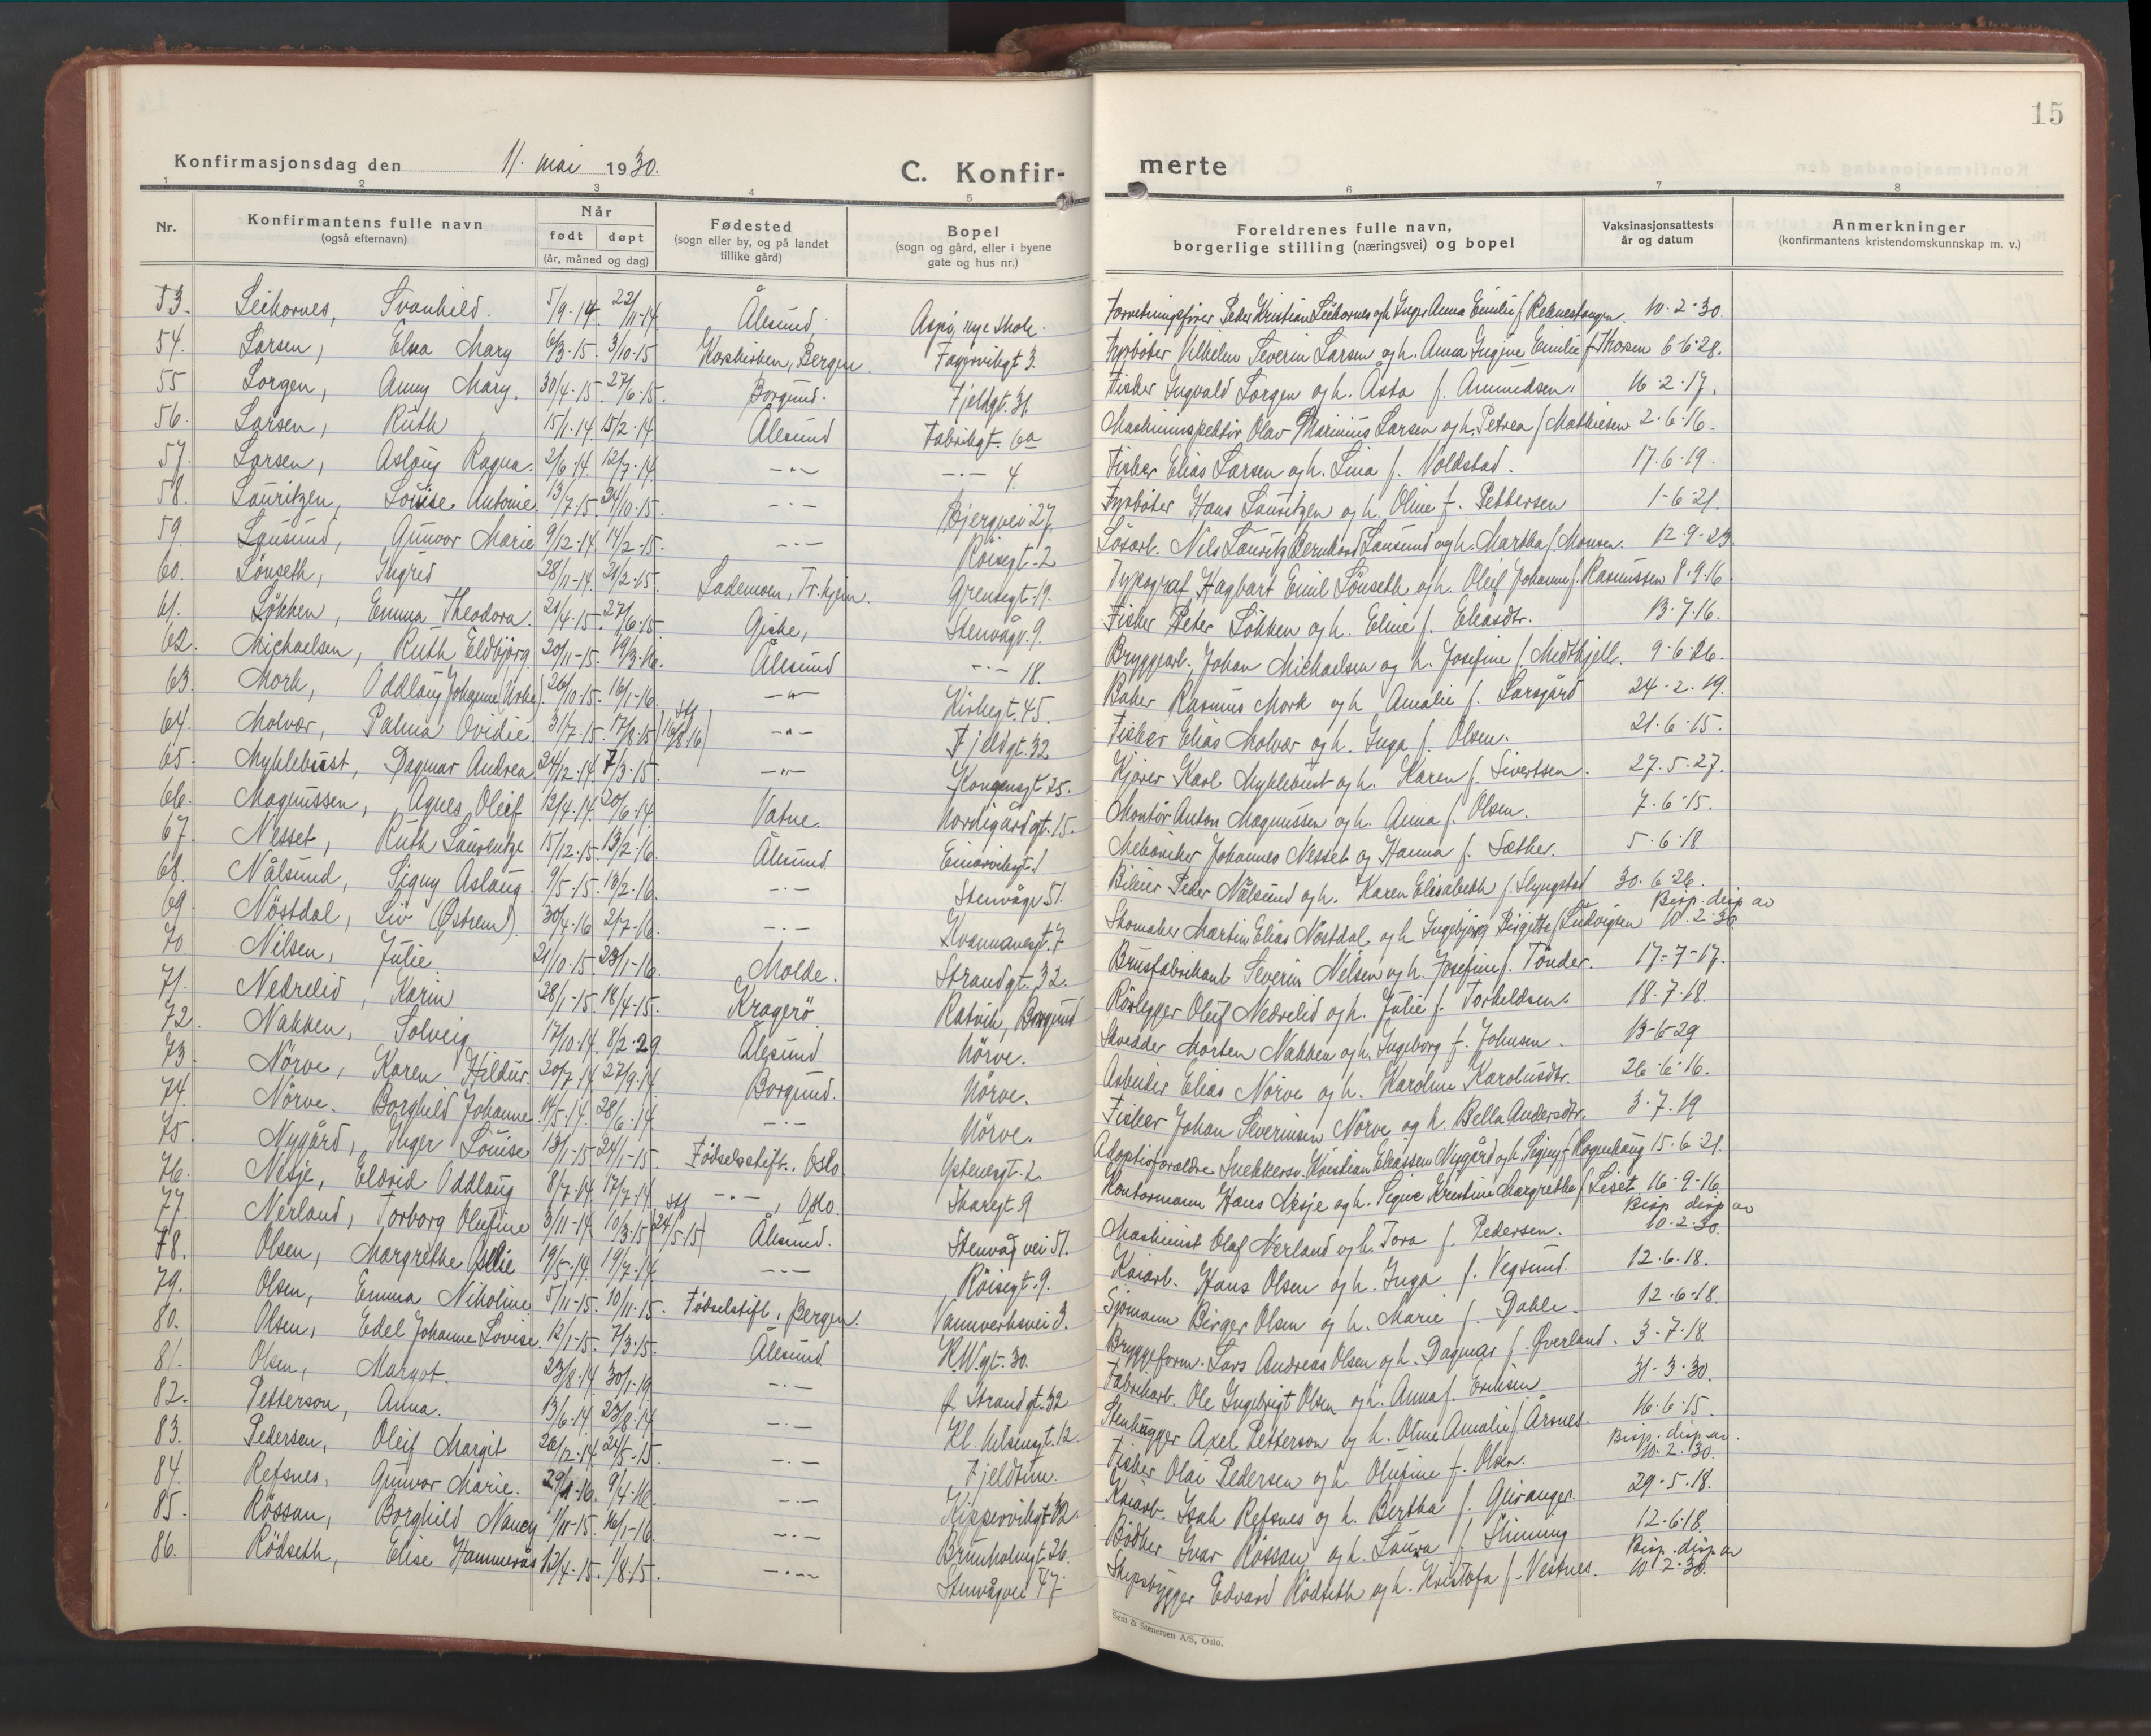 15
Konfirmasjonsdag den 11. mai 1930.
C. Konfir-
merte
1 2 3 4 5 6 7 8
Nr.
Konfirmantens fulle navn
(også efternavn)
Når
født døpt
(år, måned og dag)
Fødested
(sogn eller by, og på landet
tillike gård)
Bopel
(sogn og gård, eller i byene
gate og hus nr.)
Foreldrenes fulle navn,
borgerlige stilling (næringsvei) og bopel
Vaksinasjonsattests
år og datum
Anmerkninger
(konfirmantens kristendomskunnskap m. v.)
53. Svanhild. 5/9-14. 22/11-14. Ålesund, Aspö, nye skole. Forretningsfører Peder Kristian og h. Inger Anna Emilie f. 10-2-30.
54. Larsen, Elsa Mary 6/3-15. 3/10-15 Korskirken, Bergen. 3. Fyrböter Vilhelm Severin Larsen og h. Anna Ingine Emilie f. Thorsen 6-6-28.
55 Lorgen, Anny Mary. 30/4-15. 27/6-15. Borgund. Fjeldgt. 31. Fisker Ingvald Lorgen og h. Åsta f. Amundsen. 16-2-17.
56. Larsen, Ruth 15/1-14. 15/2-14. Ålesund Fabrikgt. 6a Maskininspektör Olav Marinius Larsen og h. Petrea f. Mathiesen 2-6-16.
57. Larsen, Aslaug Ragna. 2/6-14. 12/7-14. -"- -"- 4. Fisker Elias Larsen og h. Lina f. Voldstad. 17-6-19.
58. Lauritzen, Louise Antonie 13/7-15. 24/10-15. -"- Bjergvei 27. Fyrböter Hans Lauritzen og h. Oline f. Pettersen 1-6-21.
59. Lausund, Gunvor Marie 9/12-14. 14/2-15. -"- Röisegt. 2 Lösarb. Nils Lauritz Bernhard Lausund og h. Martha f. Monsen. 12-9-23.
60. Lönseth, Ingrid 28/11-14. 21/2-15. Lademoen, Tr.hjem. Grensegt. 19. Typograf Hagbart Emil Lönseth og h. Oleif Johanne f. Rasmussen 8-9-16
61. Lökken, Emma Theodora. 21/4-15. 27/6-15. Giske, Stenvågv. 9. Fisker Peter Lökken og h. Eline f. Eliasdtr. 13-7-16.
62. Michaelsen, Ruth Eldbjörg 20/11-15. 19/3-16. Ålesund -"- 18. Bryggearb. Johan Michaelsen og h. Josefine f. Midtkjell. 9-6-26.
63. Mork, Oddlaug Johanne 26/10-15. 16/1-16. -"- Kirkegt. 45. Baker Rasmus Mork og h. Amalie f. Larsgård 24-2-19.
64. Molvær, Palma Ovidie 31/7-15. 17/8-15 (16/8-16) -"- Fjeldgt. 32 Fisker Elias Molvær og h. Inga f. Olsen. 21-6-15.
65. Myklebust, Dagmar Andrea 24/12-14. 7/3-15. -"- Kongensgt. 25. Kjörer Karl Myklebust og h. Karen f. Sivertsen. 27-5-27.
66. Magnussen, Agnes Oleif 12/4-14. 20/6-14. Vatne. Nordigårdgt. 15. Montör Anton Magnussen og h. Anna f. Olsen. 7-6-15.
67. Nesset, Ruth Laurentze 15/12-15. 13/2-16. Ålesund Einarvikgt. 1 Mekaniker Johannes Nesset og Hanna f. Sæther. 5-6-18
68. Nålsund, Signy Aslaug. 9/5-15. 13/2-16. -"- Stenvågv. 51. Bileier Peder Nålsund og h. Karen Elisabeth f. Slyngstad 30-6-26.
69. Nöstdal, Liv (Östrem). 30/4-16 21/7-16. -"- Kvennanesgt. 7 Skomaker Martin Elias Nöstdal og h. Ingebjörg Birgitte f. Ludvigsen Bisp. disp. av 10-2-30.
70. Nilsen, Julie 21/10-15. 23/1-16. Molde. Strandgt. 32. Brusfabrikant Severin Nilsen og h. Josefine f. Tönder. 17-7-17.
71. Nedrelid, Karin 28/1-15. 18/4-15. Kragerö Ratvik, Borgund Rörlegger Oleif Nedrelid og h. Julie f. Torkeldsen. 18-7-18.
72. Nakken, Solveig 17/10-14. 8/2-29. Ålesund Nörve. Skredder Morten Nakken og h. Ingeborg f. Johnsen. 13-6-29
73. Nörve, Karen Hildur. 20/7-14. 27/9-14 Borgund. Nörve. Arbeider Elias Nörve og h. Karoline Karolusdtr. 26-6-16.
74. Nörve. Borghild Johanne 14/5-14. 28/6-14 -"- Nörve. Fisker Johan Severinsen Nörve og h. Bella Andersdtr. 3-7-19
75. Nygård, Inger Louise 13/1-15. 24/1-15. Födselsstift., Oslo Ystenesgt. 2. Adoptivforeldre Snekkersv. Kristian Eliassen Nygård og h. Signy f. Rogenhaug 15-6-21.
76. Nesje, Eldrid Oddlaug 8/7-14. 17/7-14 -"-, Oslo. Skaregt. 9 Kontormann Hans Nesje og h. Signe Kristine Margrethe f. Liset 16-9-16
77. Nerland, Torborg Olufine 3/11-14. 10/3-15 (24/5-15) Ålesund. Stenvågvei 51. Maskinist Olaf Nerland og h. Tora f. Pedersen. Bisp disp av 10-2-30.
78. Olsen, Margrethe Oselie 19/5-14. 19/7-14 -"- Röisegt. 9. Kaiarb. Hans Olsen og h. Inga f. Vegsund. 12-6-18.
79. Olsen, Emma Nikoline 5/11-15. 10/11-15. Födselstift., Bergen. Vannverksvei 3. Sjömann Birger Olsen og h. Marie f. Dahle. 12-6-18.
80. Olsen, Edel Johanne Lovise. 12/1-15. 7/3-15. Ålesund K.W.gt. 30. Bryggeform. Lars Andreas Olsen og h. Dagmar f. Överland. 3-7-18
81. Olsen, Margot. 23/8-14. 30/1-19 -"- Strandgt. 32 Fabrikarb. Ole Ingebrigt Olsen og h. Anna f. Eriksen 31-3-30.
82. Petterson, Anna. 13/6-14. 23/8-14 -"- Kl. Nilsensgt. 12. Stenhugger Axel Petterson og h. Oline Amalie f. Årsnes. 16-6-15.
83. Pedersen, Oleif Margit 26/12-14. 24/5-15. -"- Fjeldtun. Fisker Olai Pedersen og h. Olufine f. Olsen. Bisp. disp. av. 10-2-30.
84. Refsnes, Gunvor Marie. 29/1-16. 9/4-16. -"- Kipperviksgt. 12. Kaiarb. Isak Refsnes og h. Bertha f. Geiranger. 29-5-18.
85. Rössan, Borghild Nancy 1/11-15. 16/1-16. -"- Brunholmgt. 26. Bödker Ivar Rössan og h. Laura f. Slinning 12-6-18.
86. Rödseth, Elise Hammerås 12/4-15. 1/8-15. -"- Stenvågvei 47. Skipsbygger Edvard Rödseth og h. Kristofa f. Vestnes. Bisp. disp av 10-2-30.
Sem & Stenersen A/S, Oslo.